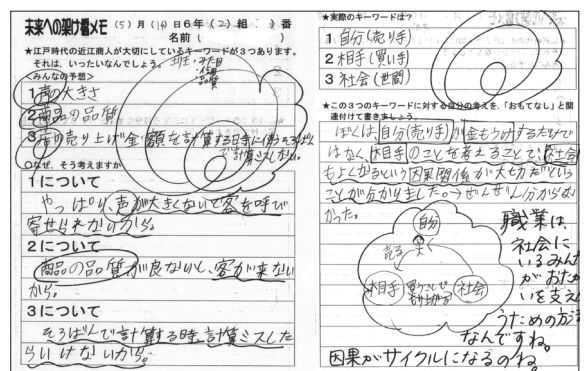 未来への架け橋メモ (5)月(14)日6年(2)組( )番
名前( )
★江戸時代の近江商人が大切にしているキーワードが3つあります。
それは、いったいなんでしょう。
<みんなの予想>
1 声の大きさ
2 商品の品質
3 店の売り上げ金額を計算する時に使うそろばん
で計算ミスしない。
○なぜ、そう考えますか
1について
やっぱり、声が大きくないで客を呼び
寄せられないから。
2について
商品の品質が良ないと、客が来ない
から。
3について
そろばんで計算する時、計算ミスした
らいけないから。
★実際のキーワードは?
1 自分(売り手)
2 相手(買い手)
3 社会(世間)
★この3つのキーワードに対する自分の考えを、「おもてなし」と関
連付けて書きましょう。
ぼくは、自分(売り手)が金もうけするだけで
はなく、相手のことを考えることで、社会
もよくがるという因果関係が大切だという
ことが分かりました。→ぜんぜん分からな
かった。
自分
売る
相手
買うことで
もり上がる
社会
職業は、
社会に
いるみん
がおたが
いを支え
うための方法
なんですね。
因果がサイクルになるのね。